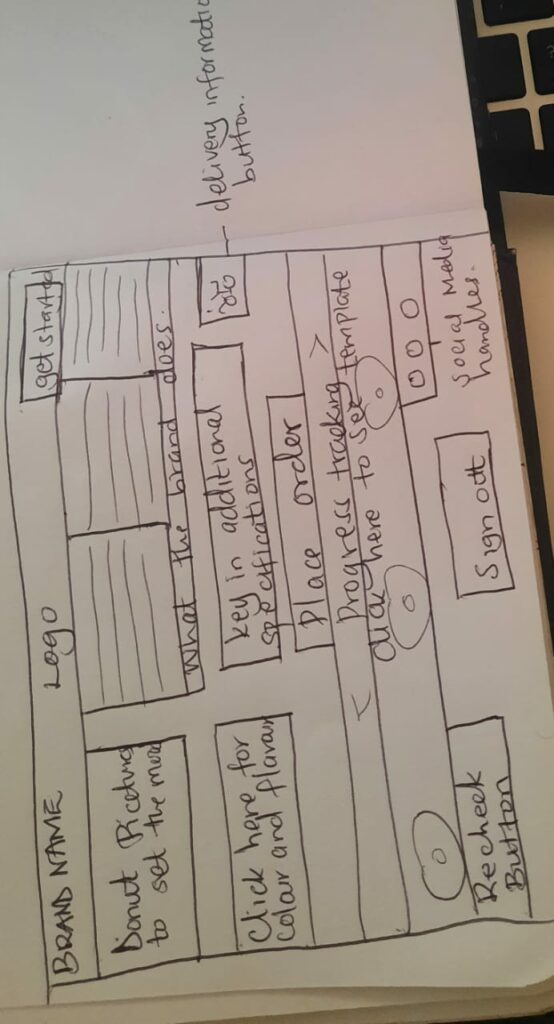 BRAND NAME
LOGO
get started
Donut Picture
to set the mood
What the brand does.
Click here for
Colour and flavour
key in additional
specifications
info
delivery information
button.
Place order
< Progress tracking >
click here to see template
Recheck
Button
Sign out
Social Media
handles.